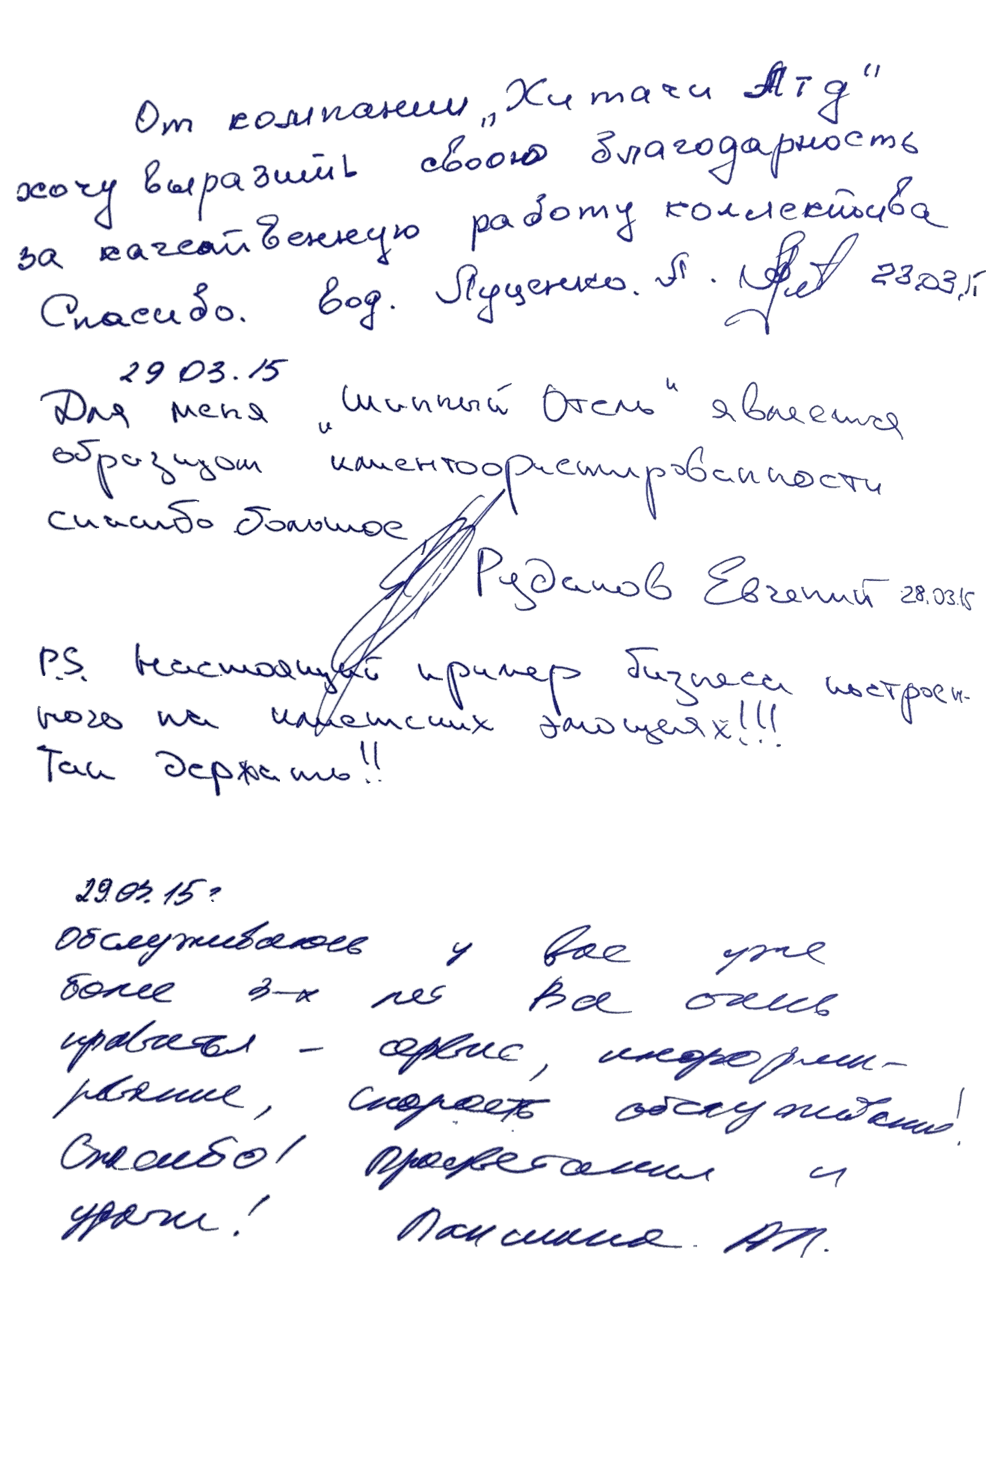 От компании „Хитачи Лтд"
хочу выразить свою благодарность
за качественную работу коллектива
Спасибо. вод. Луценко. Л. 23.03.15
29 03.15
Для меня „Шинный Отель" является
образцом клиентоориентированности
спасибо большое
Евгений 28.03.15
P.S. Настоящий пример бизнеса построен-
ного на клиентских эмоциях!!!
Так держать!!
29.03.15 г
Обслуживаюсь у вас уже
более 3-х лет Все очень
нравится - сервис, информи-
рвание, скорость обслуживания!
Спасибо! Процветания и
удачи! А.П.